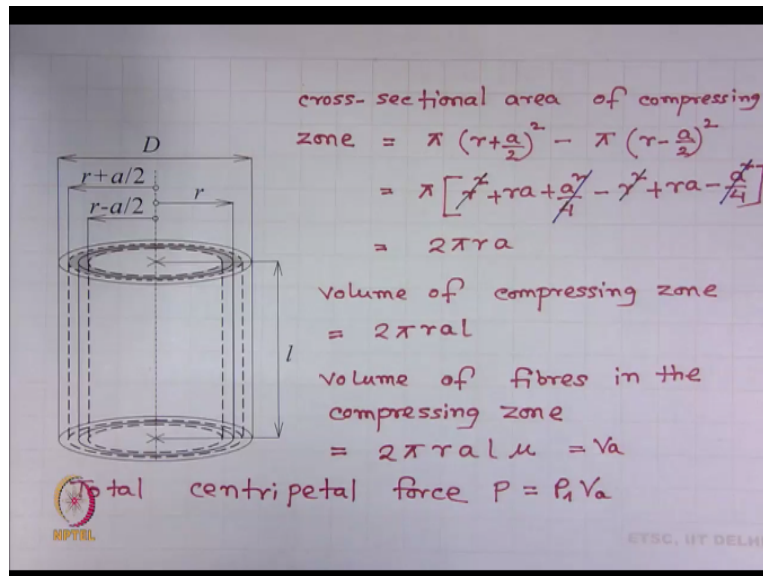 D
r+a/2
r
r-a/2
l
cross-sectional area of compressing
zone = π (r+a/2)² - π (r-a/2)²
= π [r²+ra+a²/4 - r²+ra-a²/4]
= 2πra
volume of compressing zone
= 2πral
volume of fibres in the
compressing zone
= 2πralμ = Va
Total centripetal force P = P₁Va
NPTEL
ETSC, IIT DELHI